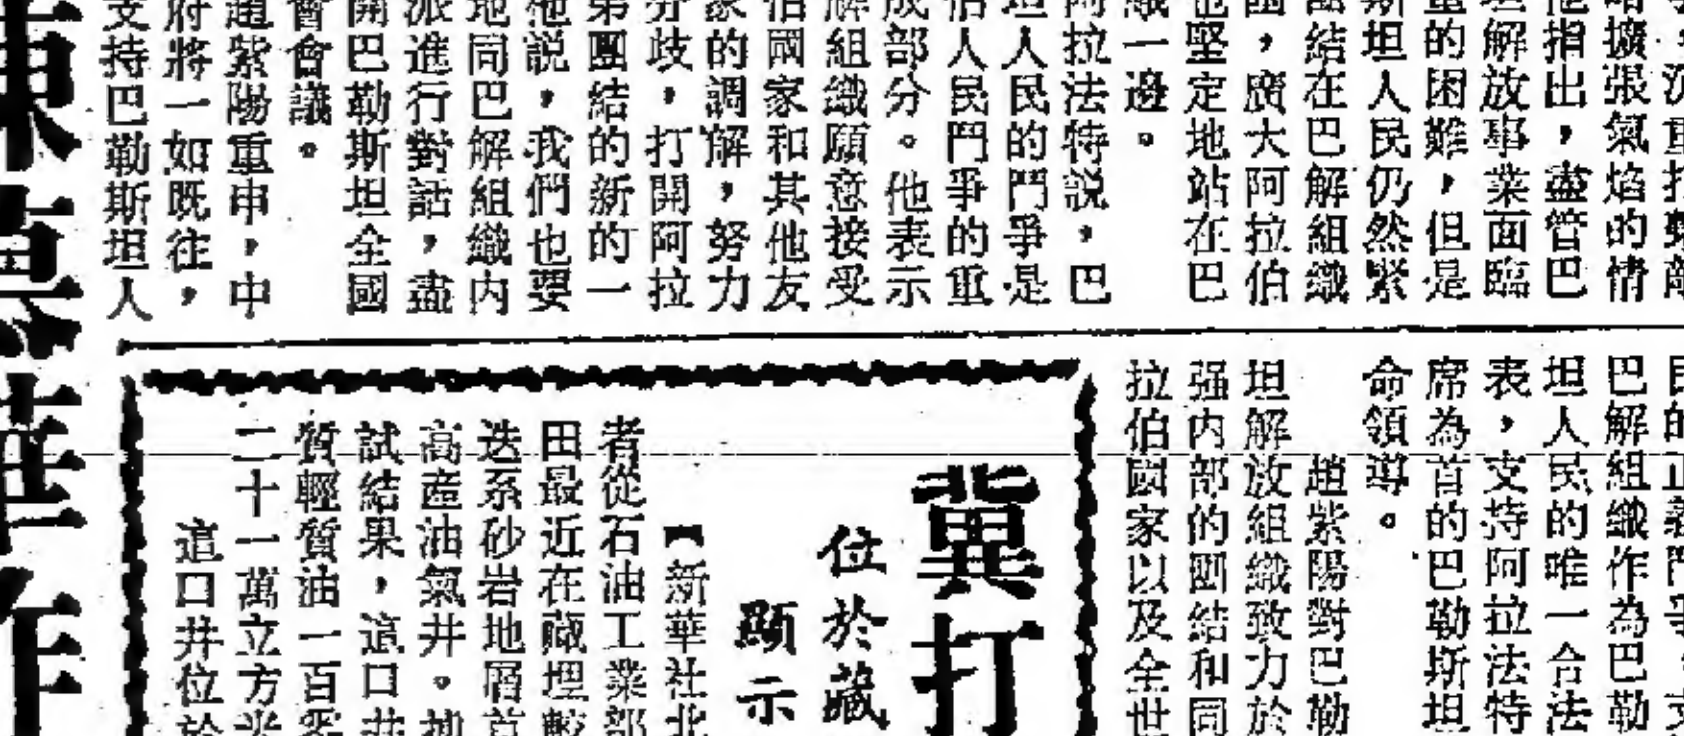 略擴張氣焰的情
他指出，盡管巴
坦解放事業面臨
重的困難，但是
斯坦人民仍然緊
團結在巴解組織
圍，廣大阿拉伯
也堅定地站在巴
織一邊。
阿拉法特說，巴
坦人民的鬥爭是
伯人民鬥爭的重
成部分。他表示
解組織願意接受
伯國家和其他友
家的調解，努力
分歧，打開阿拉
第團結的新的一
他說，我們也要
地同巴解組織内
派進行對話，盡
開巴勒斯坦全國
會會議。
趙紫陽重申，中
府將一如既往，
支持巴勒斯坦人
民的正義鬥爭，支
巴解組織作為巴勒
坦人民的唯一合法
表，支持阿拉法特
席為首的巴勒斯坦
命領導。
趙紫陽對巴勒
坦解放組織致力於
强内部的團結和同
拉伯國家以及全世
冀打
位於藏
顯示
【新華社北
者從石油工業部
田最近在藏埋較
迭系砂岩地層首
高産油氣井。
試結果，這口井
質輕質油一百零
二十一萬立方米
這口井位於
慕華作